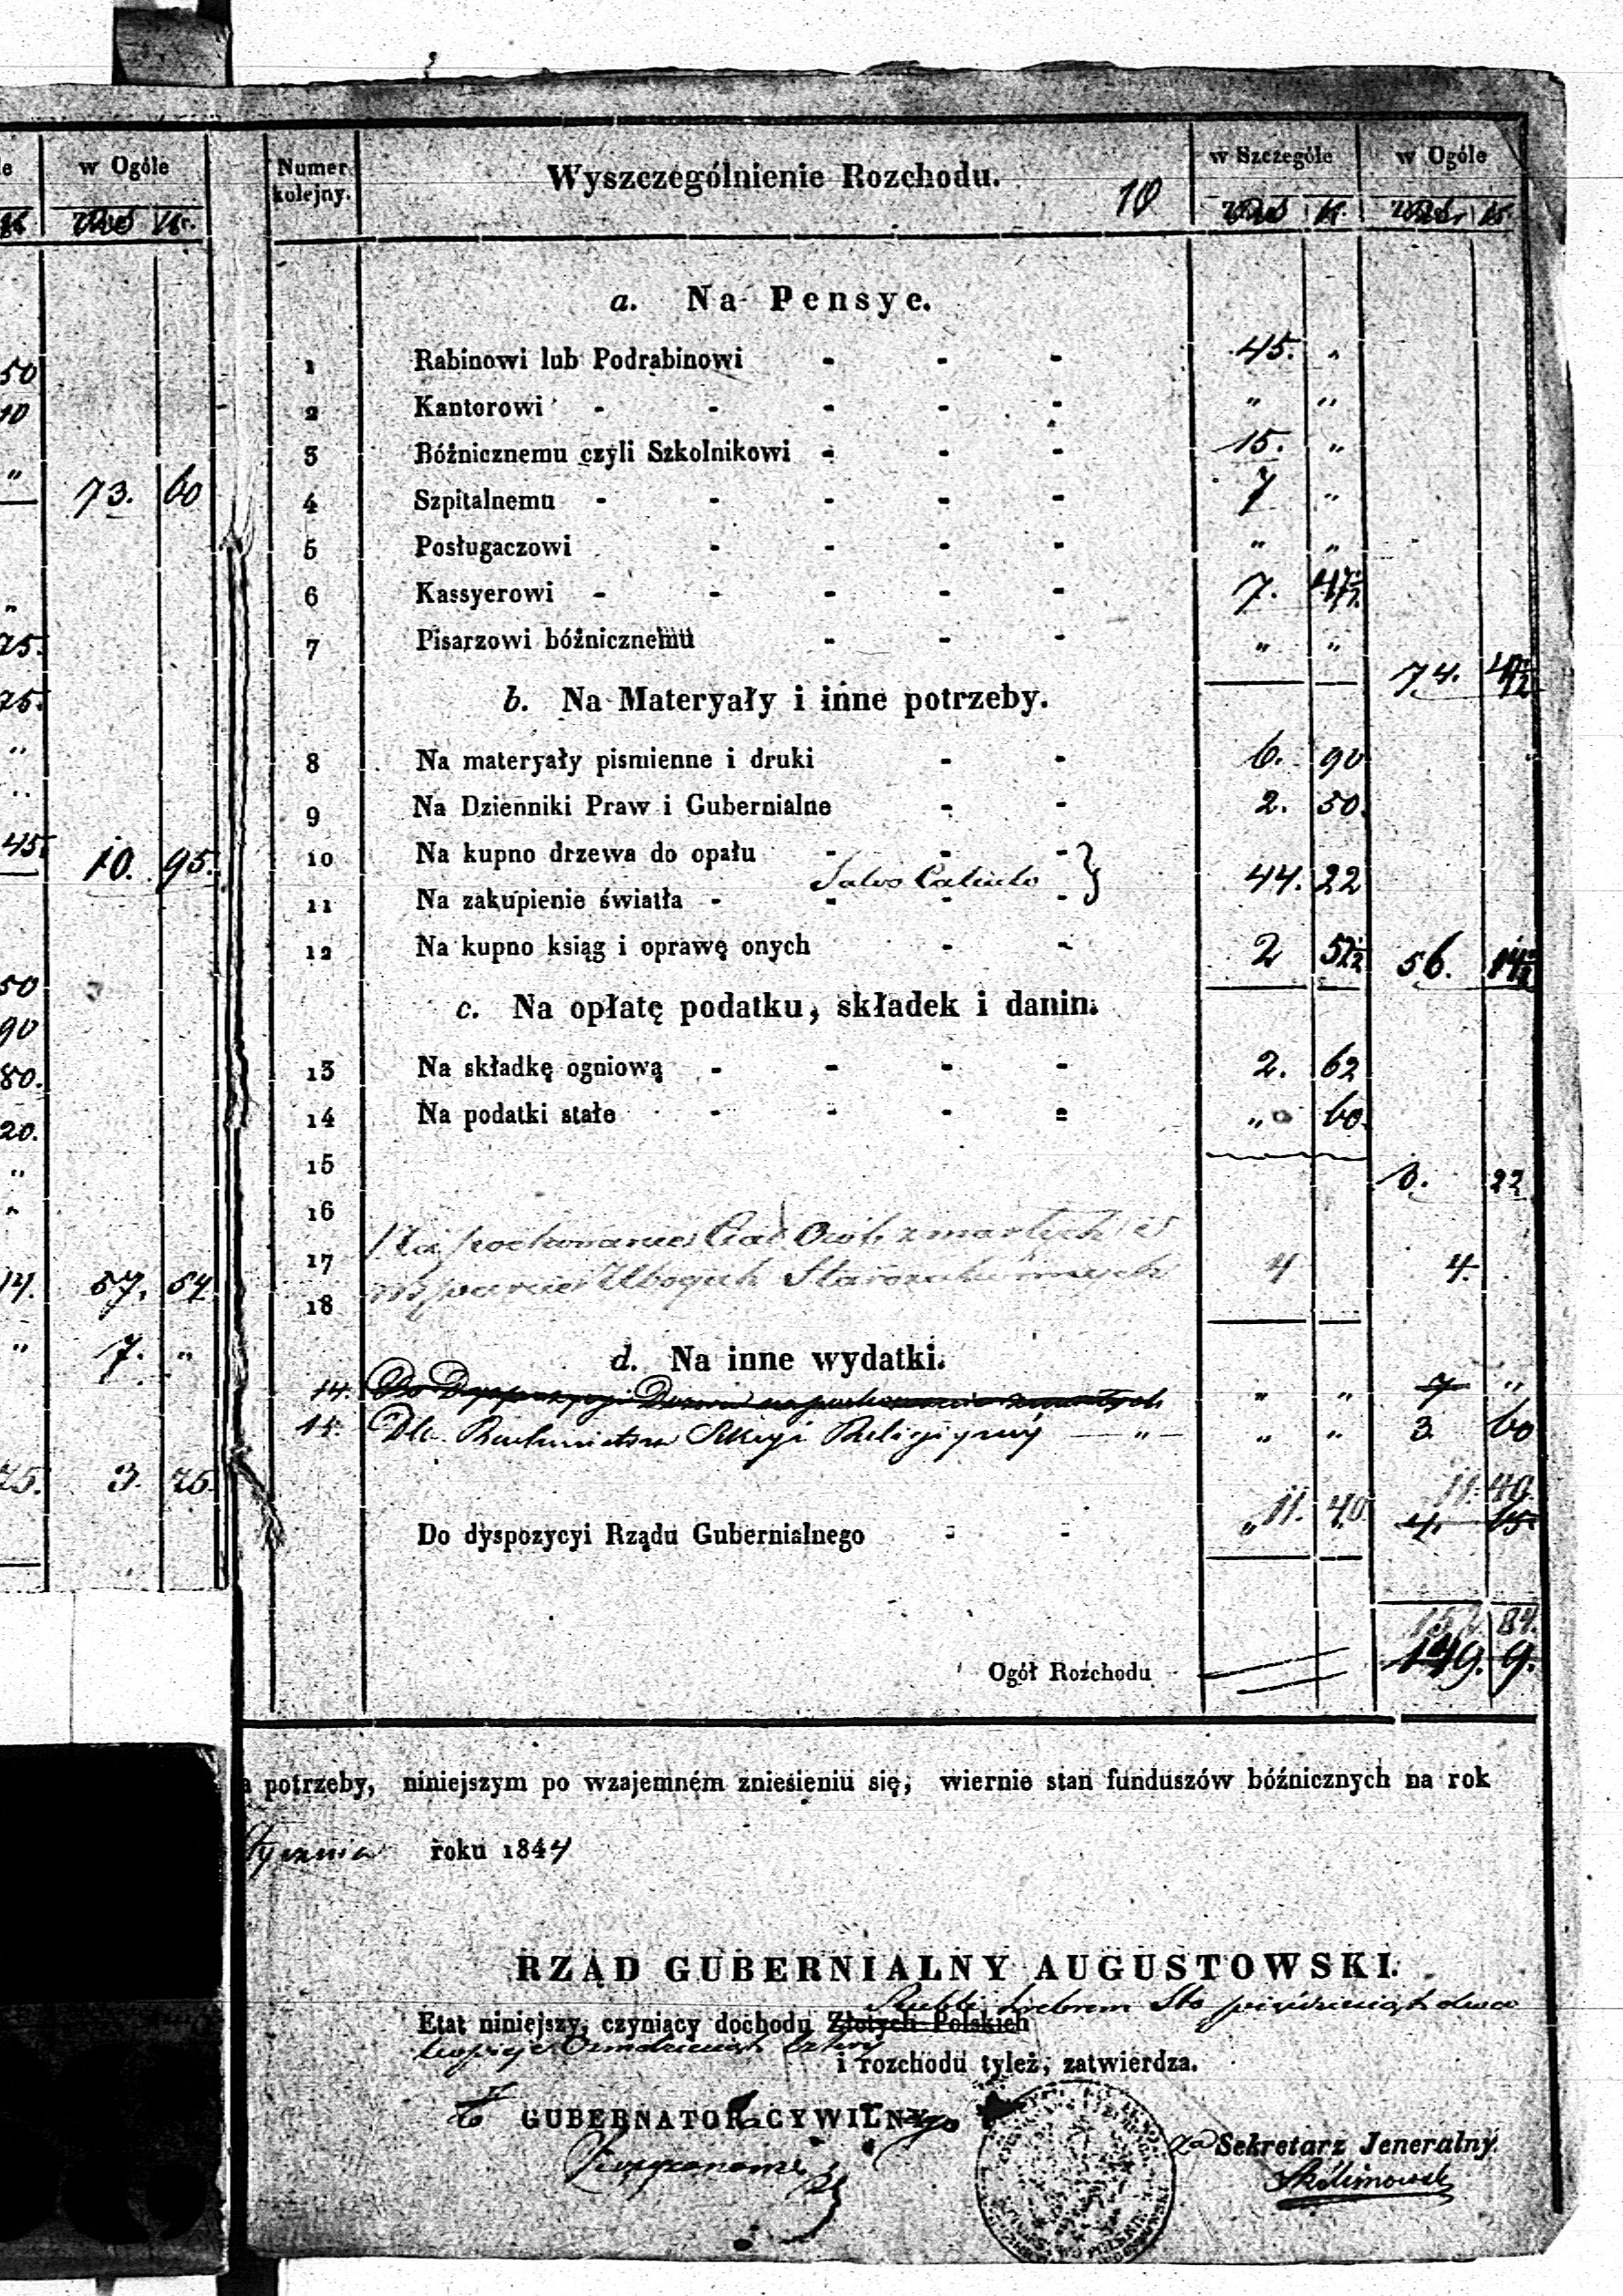 w Ogóle
Numer kolejny.
Wyszczególnienie Rozchodu.
10
w Szczególe
w Ogóle
a. Na Pensye.
1 Rabinowi lub Podrabinowi - - - 45. „
2 Kantorowi - - - - - „ „
3 Bóżnicznemu czyli Szkolnikowi - - - 15. „
4 Szpitalnemu - - - - - 7 „
5 Posługaczowi - - - - „ „
6 Kassyerowi - - - - - 7. 47½
7 Pisarzowi bóżnicznemu - - - „ „
74. 47½
b. Na Materyały i inne potrzeby.
8 Na materyały pismienne i druki - - 6. 90
9 Na Dzienniki Praw i Gubernialne - - 2. 50.
10 Na kupno drzewa do opału - - -
Salvo Calculo } 44. 22
11 Na zakupienie światła - - - -
12 Na kupno ksiąg i oprawę onych - - 2 52½ 56. 14½
c. Na opłatę podatku, składek i danin.
13 Na składkę ogniową - - - - 2. 62
14 Na podatki stałe - - - - „ 60.
15
3. 22
16
Na pochowanie Ciał Osób zmarłych i
17
4 4.
wsparcie Ubogich Starozakonnych
18
d. Na inne wydatki.
14. Do Dyspozycyi Dozoru na pochowanie zmarłych „ „ 7 „
14. Dla Rachmistrza Sekcyi Religijnéj — „ — „ „ 3 60
11. 40.
Do dyspozycyi Rządu Gubernialnego - - „ 11. 40. 4. 15
152 84.
Ogół Rozchodu 149. 9.
73. 60
10. 95.
57. 54
7. „
3. 75
50
10
„
„
75.
75.
„
45.
50
90
80.
20.
„
„
75.
a potrzeby, niniejszym po wzajemném zniesieniu się, wiernie stan funduszów bóżnicznych na rok
Stycznia roku 1844
RZĄD GUBERNIALNY AUGUSTOWSKI.
Rubli srebrem Sto pięćdziesiąt dwa
Etat niniejszy, czyniący dochodu Złotych Polskich
kopiejek Ośmdziesiąt cztery
i rozchodu tyleż, zatwierdza.
GUBERNATOR CYWILNY
za Sekretarz Jeneralny.
Skolimowski